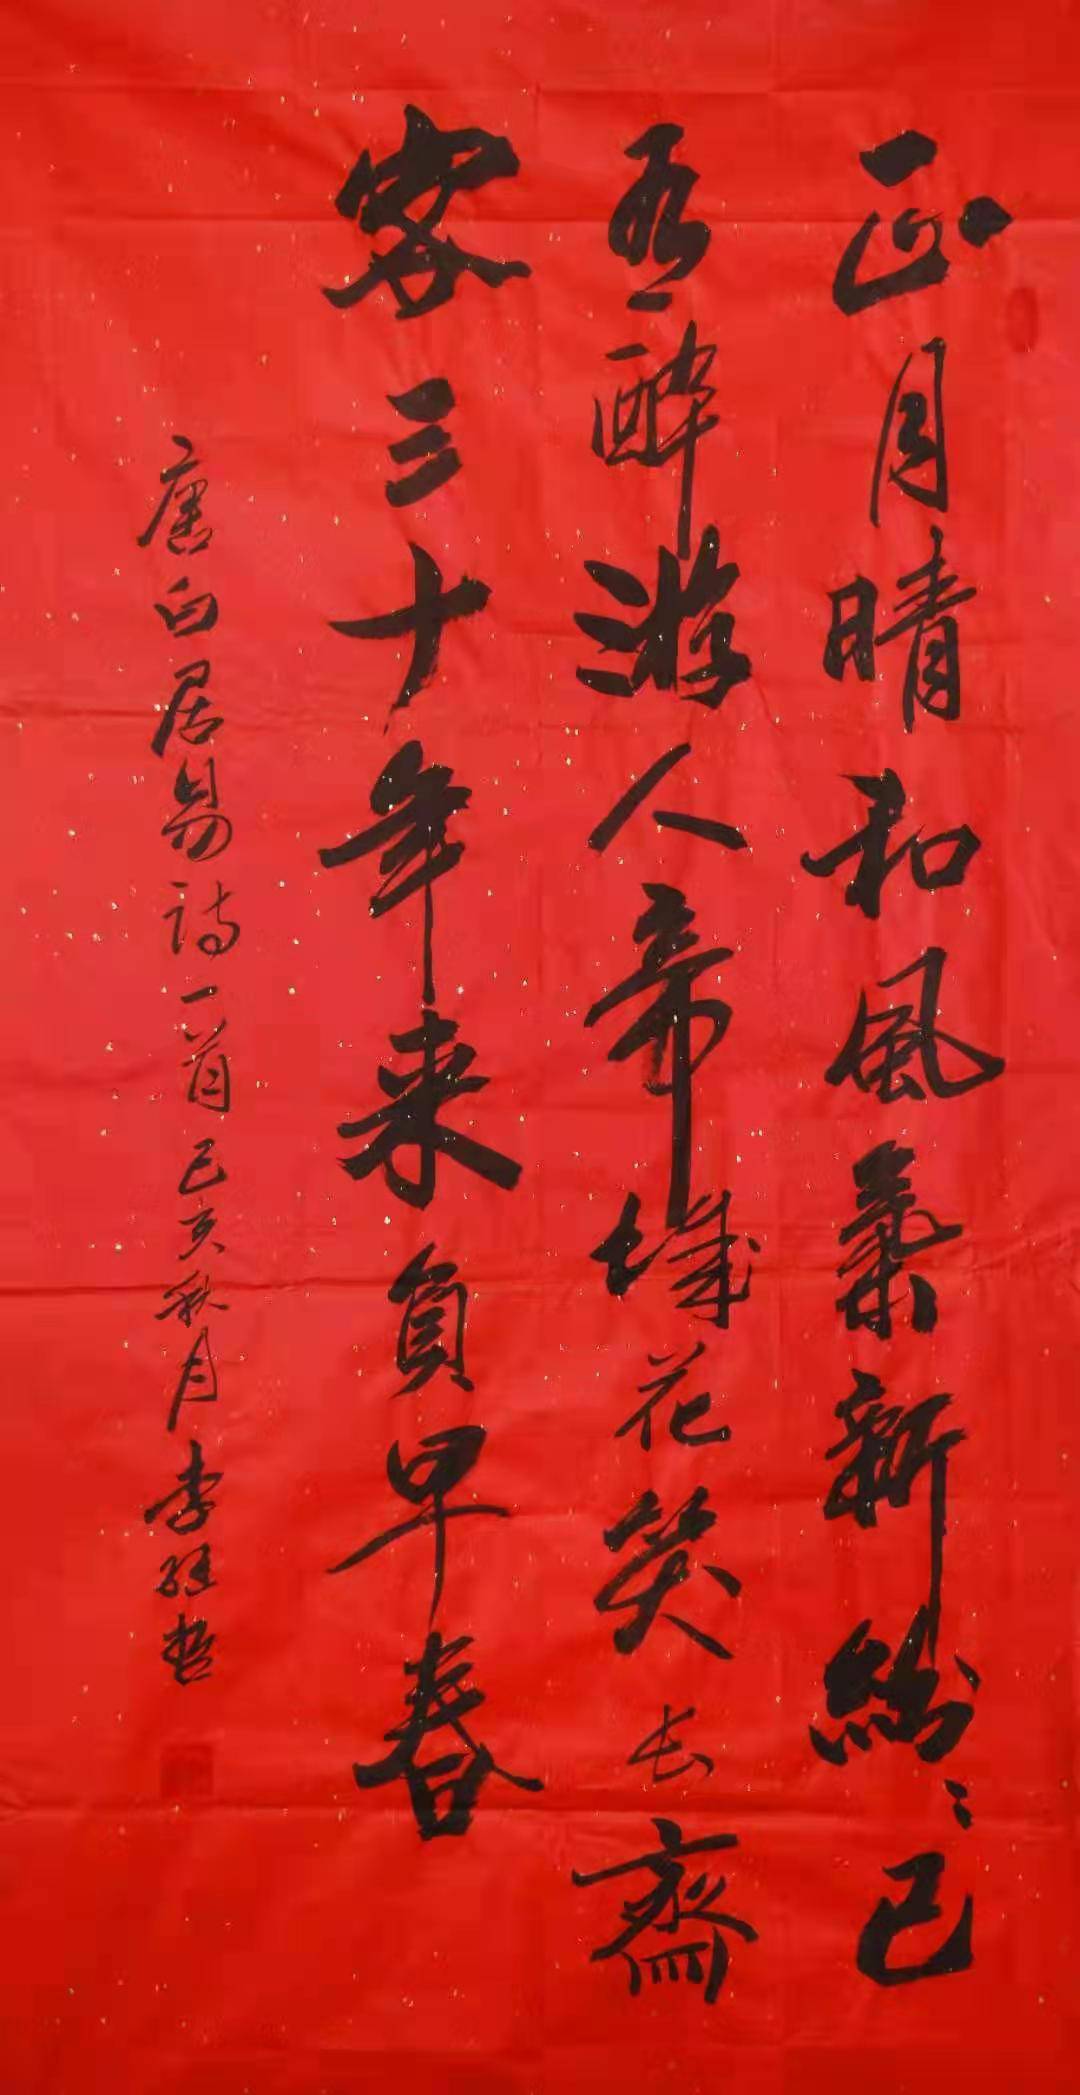 正月晴和風氣新紛〻已
有醉游人帝城花笑長齋
客三十年来負早春
唐白居易詩一首己亥秋月李經哲